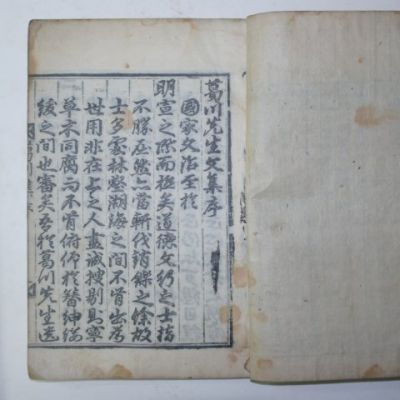 葛川先生文集序
國家文治至於
明宣之際而極矣道德文行之士指
不勝屈然亦當斬伐銷鑠之餘故
士多雲林壑湖海之間不肯出為
世用非在上之人盡誠搜剔則寧
草木同腐而不肯俯仰於簪紳
之間也審矣吾於葛川先生遺